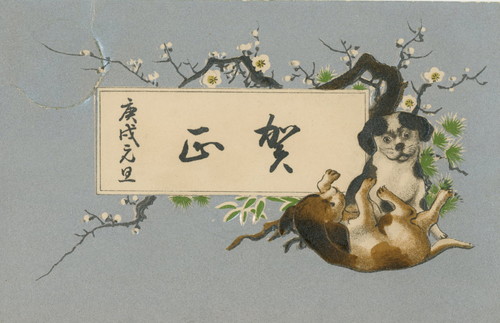 賀正
庚戌元旦